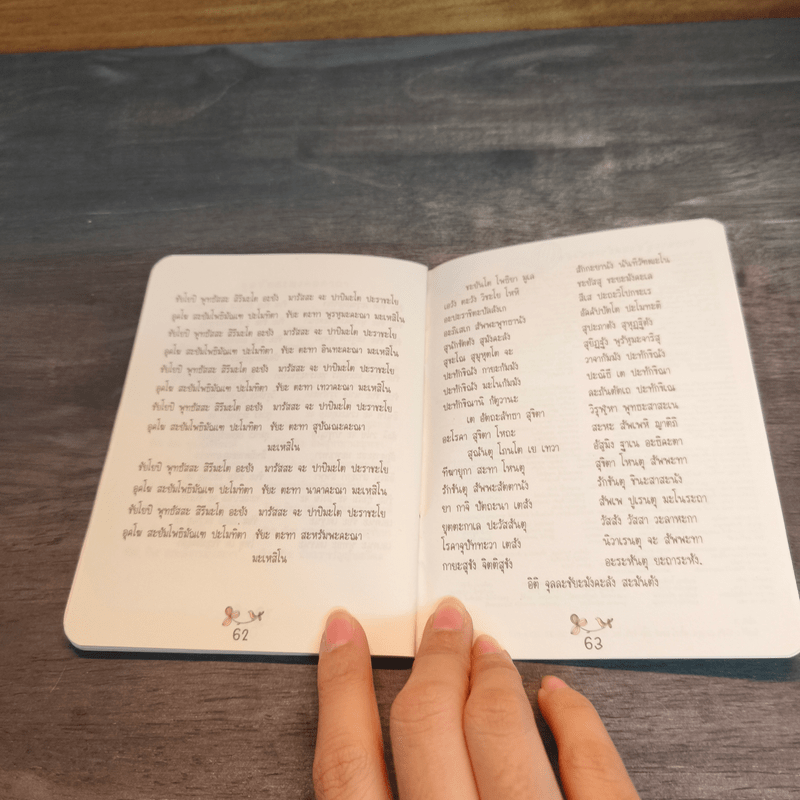 ชัยโยปิ พุทธัสสะ สิริมะโต อะยัง มารัสสะ จะ ปาปิมะโต ปะราชะโย
อุคโฆ สะยัมโพธิมัณเฑ ปะโมทิตา ชัยะ ตะทา พฺรหฺมะคะณา มะเหสิโน
ชัยโยปิ พุทธัสสะ สิริมะโต อะยัง มารัสสะ จะ ปาปิมะโต ปะราชะโย
อุคโฆ สะยัมโพธิมัณเฑ ปะโมทิตา ชัยะ ตะทา อินทะคะณา มะเหสิโน
ชัยโยปิ พุทธัสสะ สิริมะโต อะยัง มารัสสะ จะ ปาปิมะโต ปะราชะโย
อุคโฆ สะยัมโพธิมัณเฑ ปะโมทิตา ชัยะ ตะทา เทวาคะณา มะเหสิโน
ชัยโยปิ พุทธัสสะ สิริมะโต อะยัง มารัสสะ จะ ปาปิมะโต ปะราชะโย
อุคโฆ สะยัมโพธิมัณเฑ ปะโมทิตา ชัยะ ตะทา สุปัณณะคะณา
มะเหสิโน
ชัยโยปิ พุทธัสสะ สิริมะโต อะยัง มารัสสะ จะ ปาปิมะโต ปะราชะโย
อุคโฆ สะยัมโพธิมัณเฑ ปะโมทิตา ชัยะ ตะทา นาคาคะณา มะเหสิโน
ชัยโยปิ พุทธัสสะ สิริมะโต อะยัง มารัสสะ จะ ปาปิมะโต ปะราชะโย
อุคโฆ สะยัมโพธิมัณเฑ ปะโมทิตา ชัยะ ตะทา สะหรัมพะคะณา
มะเหสิโน
62
ชะยันโต โพธิยา มูเล สักกะยานัง นันทิวัฑฒะโน
เอวัง ตะวัง วิชะโย โหหิ ชะยัสสุ ชะยะมังคะเล
อะปะราชิตะปัลลังเก สีเส ปะฐะวิโปกขะเร
อะภิเสเก สัพพะพุทธานัง อัคคัปปัตโต ปะโมทะติ
สุนักขัตตัง สุมังคะลัง สุปะภาตัง สุหุฏฐิตัง
สุขะโณ สุมุหุตโต จะ สุยิฏฐัง พฺรัหฺมะจาริสุ
ปะทักขิณัง กายะกัมมัง วาจากัมมัง ปะทักขิณัง
ปะทักขิณัง มะโนกัมมัง ปะณิธี เต ปะทักขิณา
ปะทักขิณานิ กัตฺวานะ ละภันตัตเถ ปะทักขิเณ
เต อัตถะลัทธา สุขิตา วิรุฬฺหา พุทธะสาสะเน
อะโรคา สุขิตา โหถะ สะหะ สัพเพหิ ญาติภิ
สุณันตุ โภนโต เย เทวา อัสฺมิง ฐาเน อะธิคะตา
ทีฆายุกา สะทา โหนตุ สุขิตา โหนตุ สัพพะทา
รักขันตุ สัพพะสัตตานัง รักขันตุ ชินะสาสะนัง
ยา กาจิ ปัตถะนา เตสัง สัพเพ ปูเรนตุ มะโนระถา
ยุตตะกาเล ปะวัสสันตุ วัสสัง วัสสา วะลาหะกา
โรคาจุปัททะวา เตสัง นิวาเรนตุ จะ สัพพะทา
กายะสุขัง จิตติสุขัง อะระหันตุ ยะถาระหัง.
อิติ จุลละชัยะมังคะลัง สะมันตัง
63